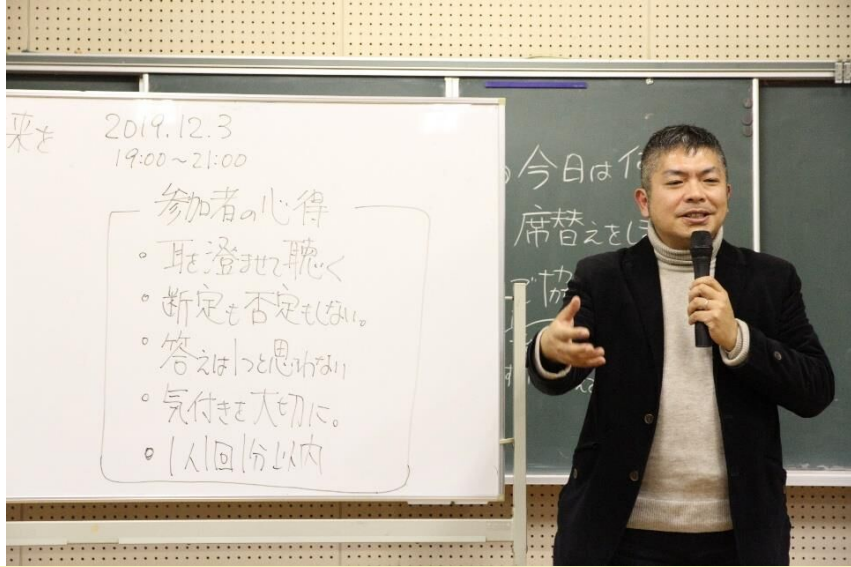 来を
2019.12.3
19:00~21:00
参加者の心得
・耳を澄ませて聴く
・断定も否定もしない。
・答えは1つと思わない
・気付きを大切に。
・1人1回1分以内
今日は
席替えを
で協